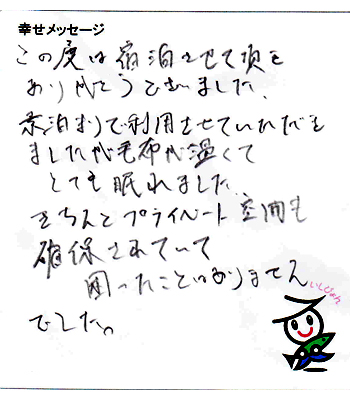 幸せメッセージ
この度は宿泊させて頂き
ありがとうございました。
素泊まりで利用させていただき
ましたが毛布が温くて
とても眠れました。
きちんとプライベート空間も
確保されていて
困ったことはありません
でした。